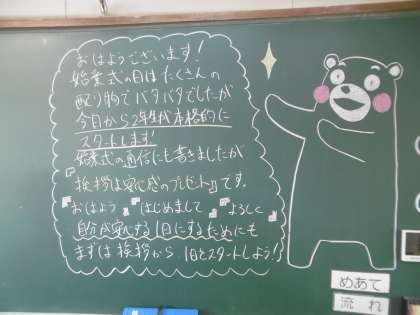 おはようございます!
始業式の日はたくさんの
配り物でバタバタでしたが
今日から2年生が本格的に
スタートします!
始業式の通信にも書きましたが
『挨拶は安心感のプレゼント』です。
『おはよう』『はじめまして』『よろしく』
自分が安心する1日にするためにも
まずは挨拶から1日をスタートしよう!
めあて
流れ